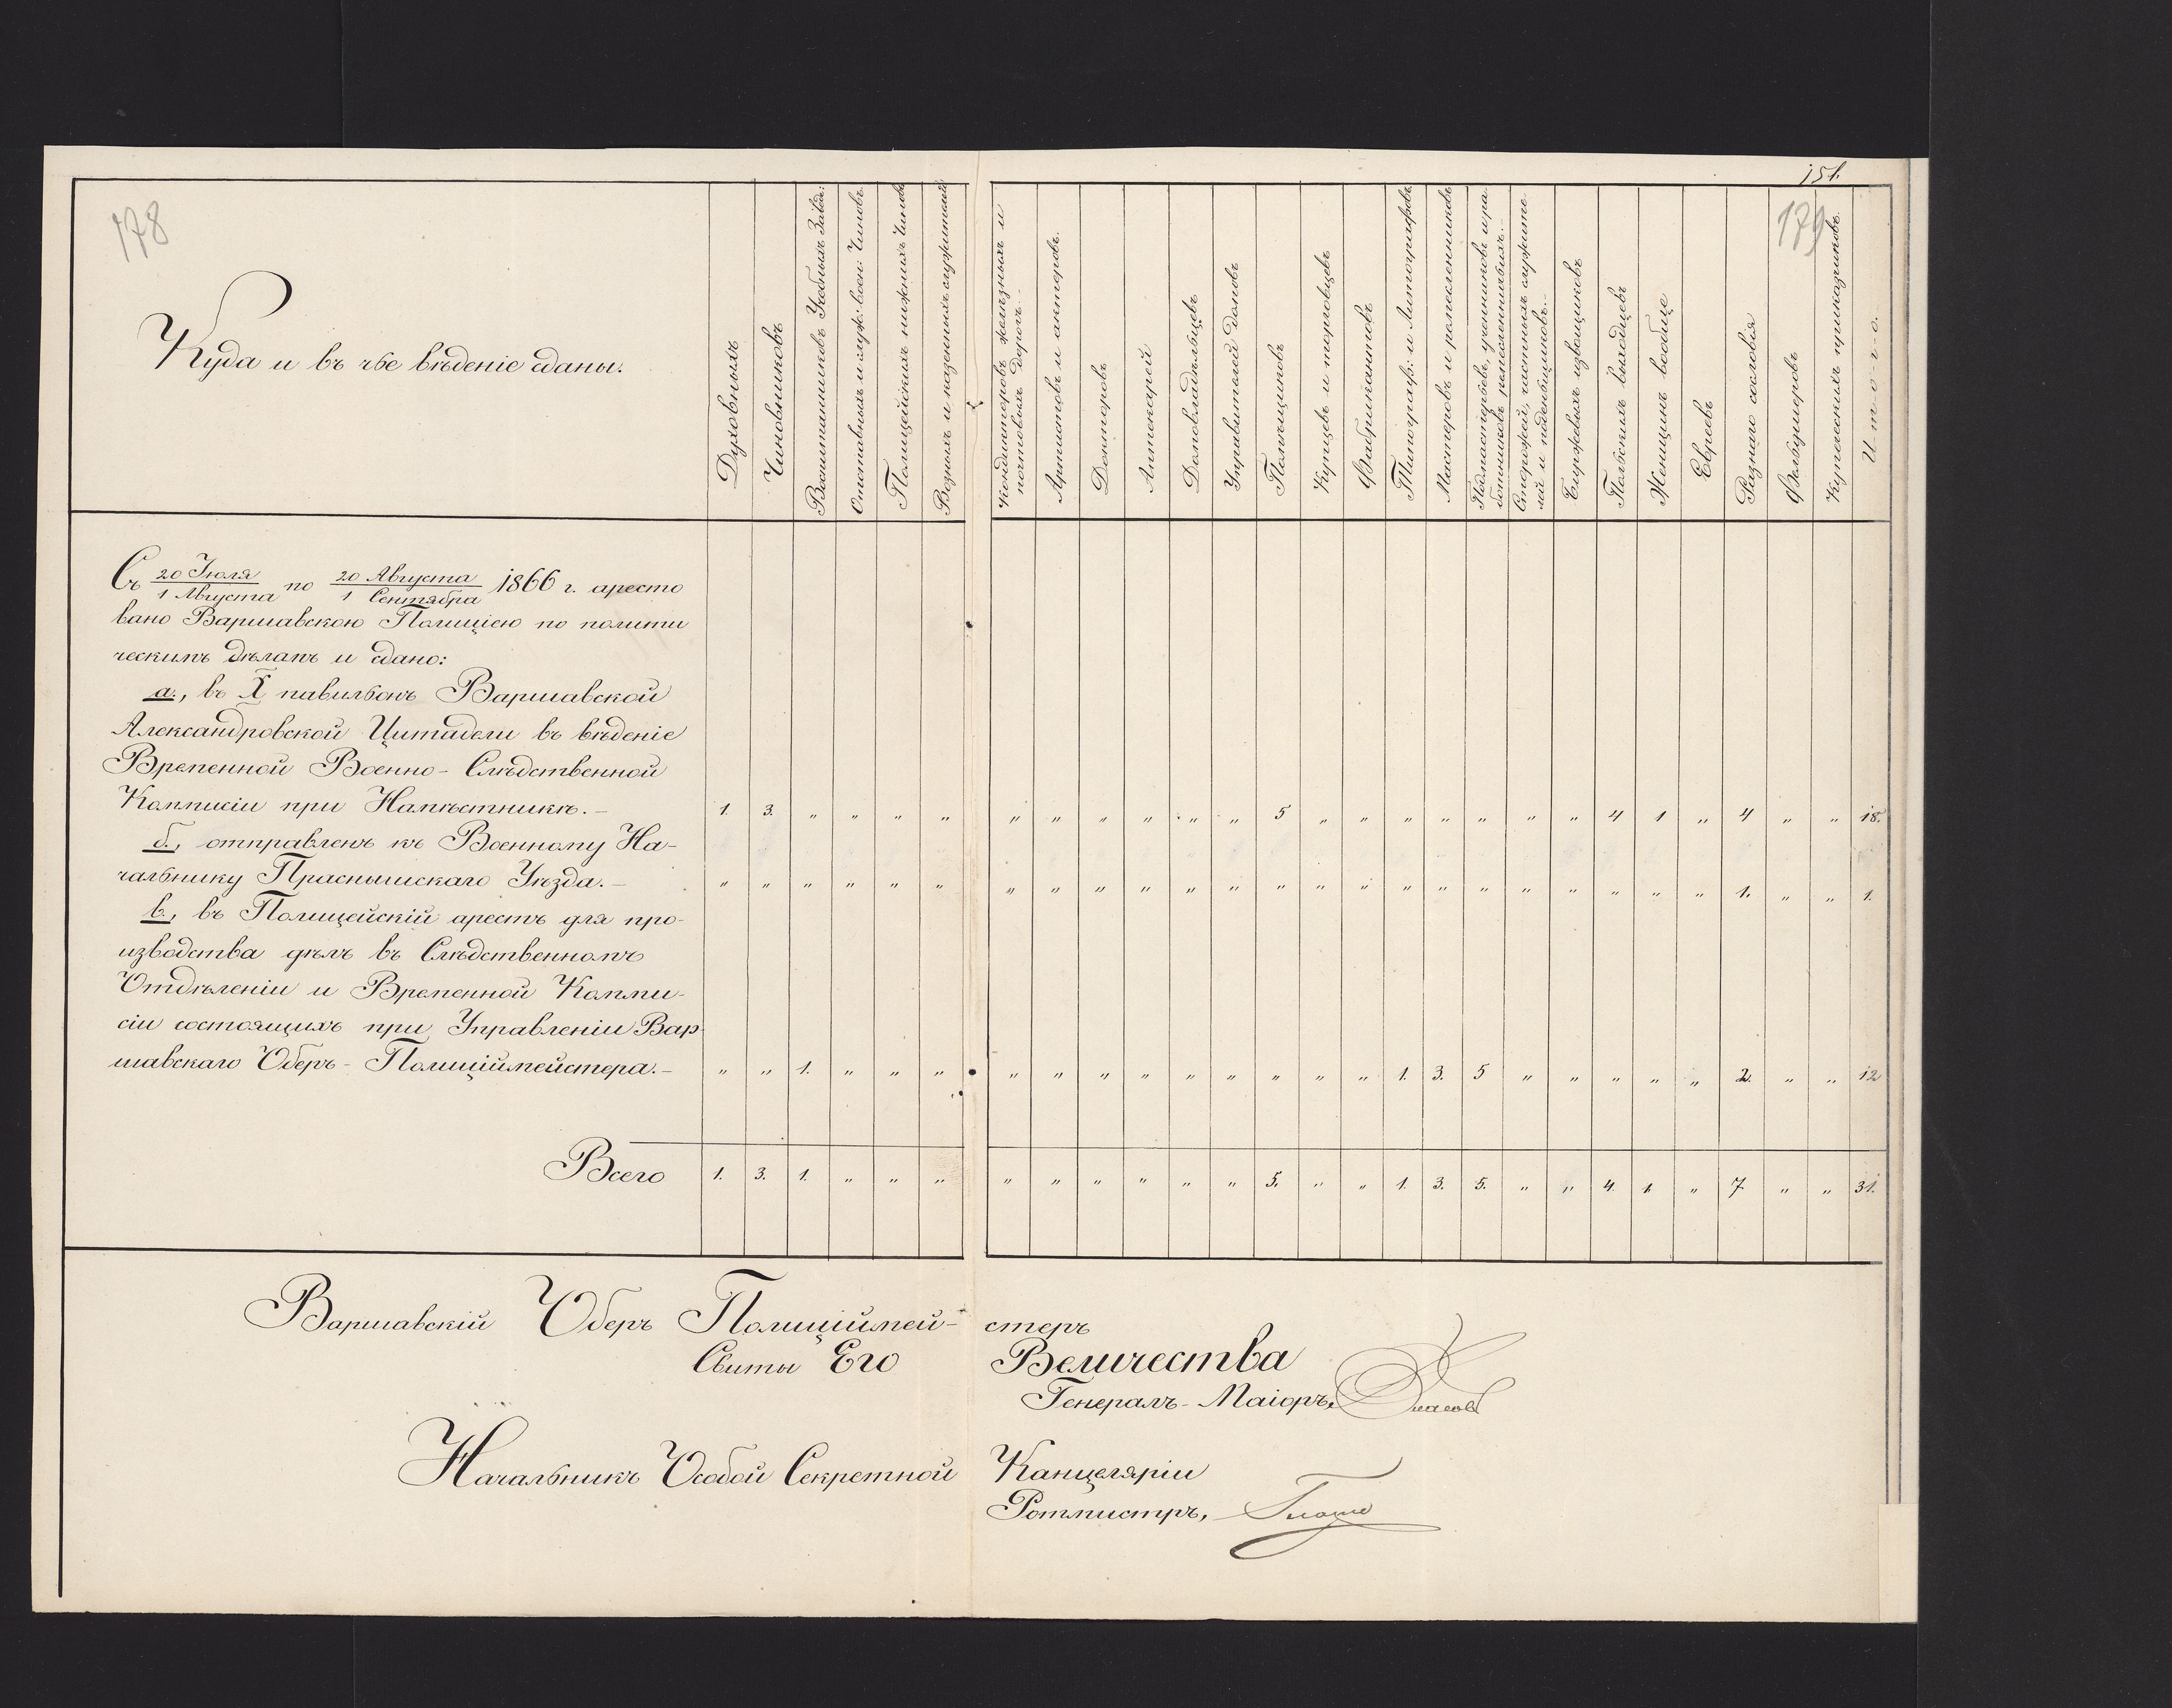 151.
178
179
Куда и въ чье вѣденіе сданы.
Духовныхъ
Чиновниковъ
Воспитанниковъ Учебныхъ Завед:
Отставныхъ и служ: воен: Чиновъ
Полицейскихъ нижнихъ Чиновъ
Возныхъ и казенныхъ служителей
Кондукторовъ желѣзныхъ и
почтовыхъ дорогъ.-
Артистовъ и актеровъ.
Докторовъ
Аптекарей
Домовладѣльцевъ
Управителей домовъ
Помѣщиковъ
Купцевъ и торговцевъ
Фабрикантовъ
Типограф: и Литографовъ
Мастеровъ и ремесленниковъ
Подмастерьевъ, учениковъ и ра-
ботниковъ ремесленническихъ.-
Сторожей, частныхъ служите-
лей и поденьщиковъ.-
Биржевыхъ извощиковъ
Польскихъ выходцевъ
Женщинъ вообще
Евреевъ
Разнаго сословія
Фельдшеровъ
Купеческихъ прикащиковъ.
И-т-о-г-о.
Съ 20 Іюля / 1 Августа по 20 Августа / 1 Сентября 1866 г. аресто
вано Варшавскою Полиціею по полити
ческимъ дѣламъ и сдано:
а., въ X павильонъ Варшавской
Александровской Цитадели въ вѣденіе
Временной Военно-Слѣдственной
Коммисіи при Намѣстникѣ.- 1. 3. " " " " " " " " " " 5 " " " " " " " 4 1 " 4 " " 18.
б., отправленъ къ Военному На-
чальнику Праснышскаго Уѣзда.- " " " " " " " " " " " " " " " " " " " " " " " 1. " " 1.
в., въ Полицейскій арестъ для про-
изводства дѣлъ въ Слѣдственномъ
Отдѣленіи и Временной Комми-
сіи состоящихъ при Управленіи Вар-
шавскаго Оберъ-Полиціймейстера.- " " 1. " " " " " " " " " " " " 1. 3. 5 " " " " " 2. " " 12
Всего 1. 3. 1. " " " " " " " " " 5. " " 1. 3. 5. " " 4. 1. " 7. " " 31.
Варшавскій Оберъ Полиціймей-стеръ
Свиты Его Величества
Генералъ-Маіоръ,
Начальникъ Особой Секретной Канцеляріи
Ротмистръ,